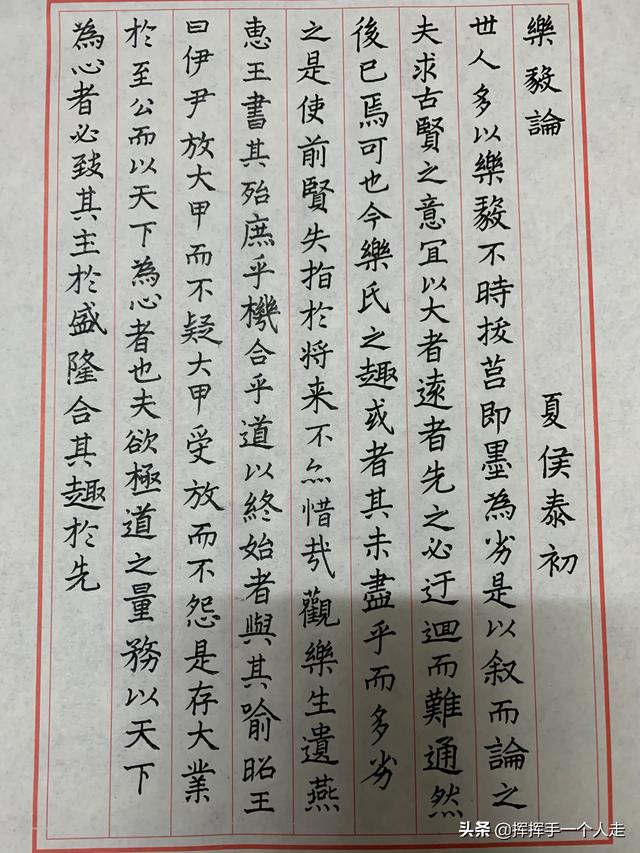 樂毅論
夏侯泰初
世人多以樂毅不時拔莒即墨為劣是以叙而論之
夫求古賢之意冝以大者遠者先之必迂迴而難通然
後已焉可也今樂氏之趣或者其未盡乎而多劣
之是使前賢失指於将来不亦惜哉觀樂生遺燕
惠王書其殆庶乎機合乎道以終始者與其喻昭王
曰伊尹放大甲而不疑大甲受放而不怨是存大業
於至公而以天下為心者也夫欲極道之量務以天下
為心者必致其主於盛隆合其趣於先
头条 @挥挥手一个人走